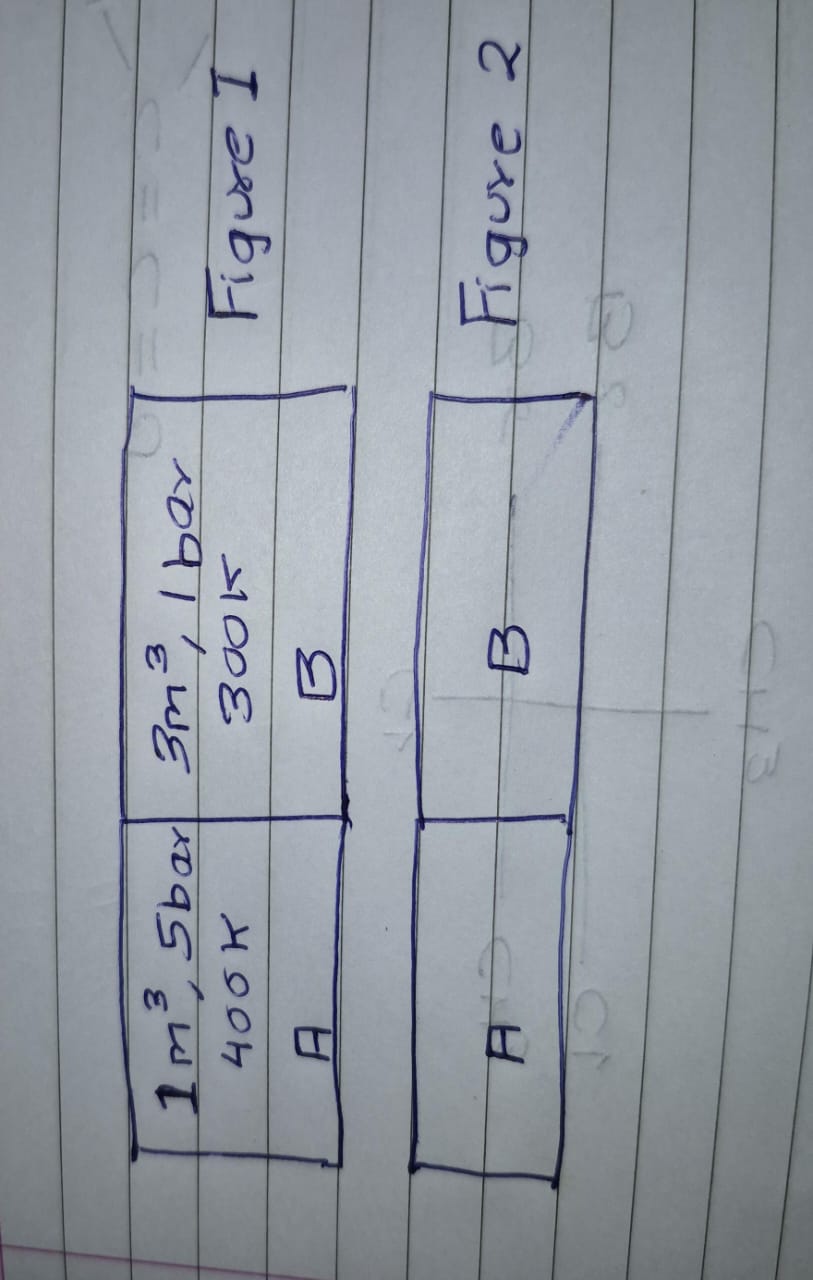 1m³, 5bar
400K
A
3m³, 1bar
300K
B
Figure 1
A
B
Figure 2